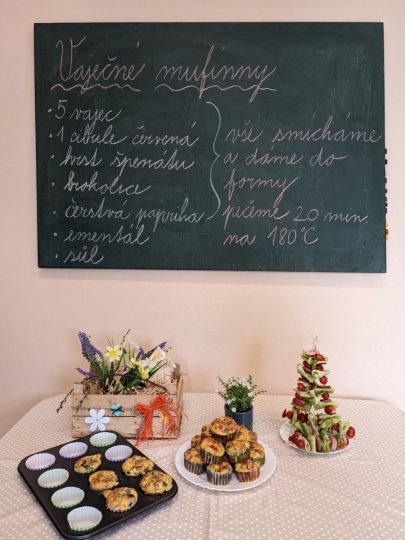 Vaječné mufinny
· 5 vajec
· 1 cibule červená
· hrst špenátu
· brokolice
· čerstvá paprika
· ementál
· sůl
vše smícháme
a dáme do
formy
pečeme 20 min.
na 180°C